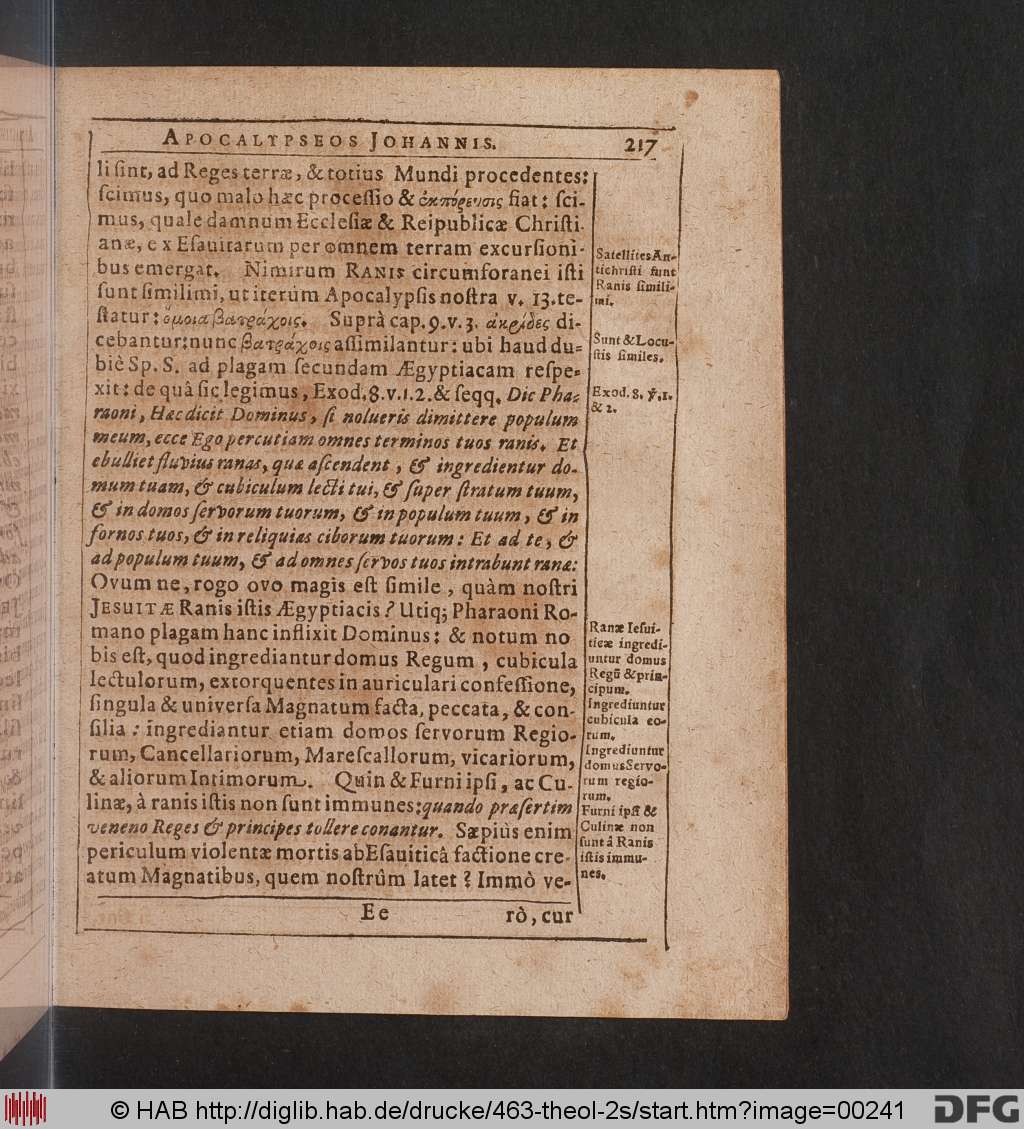 APOCALYPSEOS JOHANNIS. 217
li ſint, ad Reges terræ, & totius Mundi procedentes:
ſcimus, quo malo hæc proceſſio & ἐκπόρευσις fiat: ſci-
mus, quale damnum Eccleſiæ & Reipublicæ Chriſti-
anæ, ex Eſauitarum per omnem terram excurſioni-
bus emergat. Nimirum RANIS circumforanei iſti
ſunt ſimilimi, ut iterùm Apocalypſis noſtra v. 13. te-
ſtatur: ὅμοια βατράχοις. Suprà cap. 9. v. 3. ἀκρίδες di-
cebantur: nunc βατράχοις aſſimilantur: ubi haud du-
biè Sp. S. ad plagam ſecundam Ægyptiacam reſpe-
xit: de quâ ſic legimus, Exod. 8. v. 1. 2. & ſeqq. Dic Pha-
raoni, Hæc dicit Dominus, ſi nolueris dimittere populum
meum, ecce Ego percutiam omnes terminos tuos ranis. Et
ebulliet fluvius ranas, quæ aſcendent, & ingredientur do-
mum tuam, & cubiculum lecti tui, & ſuper ſtratum tuum,
& in domos ſervorum tuorum, & in populum tuum, & in
fornos tuos, & in reliquias ciborum tuorum: Et ad te, &
ad populum tuum, & ad omnes ſervos tuos intrabunt ranæ:
Ovum ne, rogo ovo magis eſt ſimile, quàm noſtri
JESUITÆ Ranis iſtis Ægyptiacis? Utiq; Pharaoni Ro-
mano plagam hanc inflixit Dominus: & notum no
bis eſt, quod ingrediantur domus Regum, cubicula
lectulorum, extorquentes in auriculari confeſſione,
ſingula & univerſa Magnatum facta, peccata, & con-
ſilia: ingrediantur etiam domos ſervorum Regio-
rum, Cancellariorum, Mareſcallorum, vicariorum,
& aliorum Intimorum. Quin & Furni ipſi, ac Cu-
linæ, à ranis iſtis non ſunt immunes: quando præſertim
veneno Reges & principes tollere conantur. Sæpiùs enim
periculum violentæ mortis ab Eſauiticâ factione cre-
atum Magnatibus, quem noſtrûm latet? Immò ve-
Ee rò, cur
Satellites An-
tichriſti ſunt
Ranis ſimili-
mi.
Sunt & Locu-
ſtis ſimiles.
Exod. 8. ℣. 1.
& 2.
Ranæ Ieſui-
ticæ ingredi-
untur domus
Regũ & prin-
cipum.
Ingrediuntur
cubicula eo-
rum.
Ingrediuntur
domus Servo-
rum regio-
rum.
Furni ipſi &
Culinæ non
ſunt â Ranis
iſtis immu-
nes.
© HAB http://diglib.hab.de/drucke/463-theol-2s/start.htm?image=00241 DFG